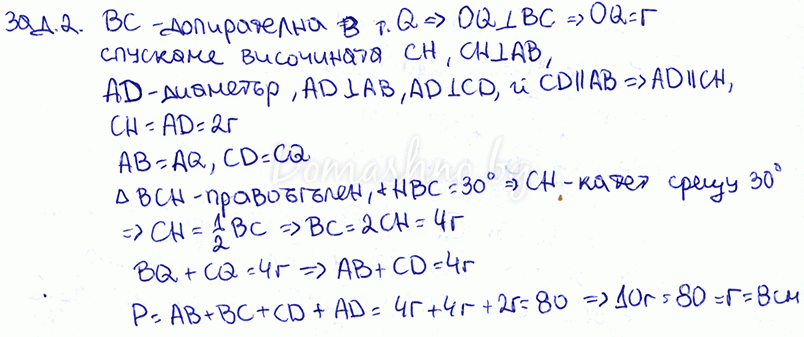 Зад.2. BC-допирателна в т.Q => OQ⊥BC => OQ=r
спускаме височината CH, CH⊥AB,
AD-диаметър, AD⊥AB, AD⊥CD, и CD∥AB => AD∥CH,
CH=AD=2r
AB=AQ, CD=CQ
Domashno.bg
△BCH-правоъгълен, ∢HBC=30° => CH-катет срещу 30°
=> CH=1/2 BC => BC=2CH=4r
BQ+CQ=4r => AB+CD=4r
P=AB+BC+CD+AD=4r+4r+2r=80 => 10r=80 =r=8см